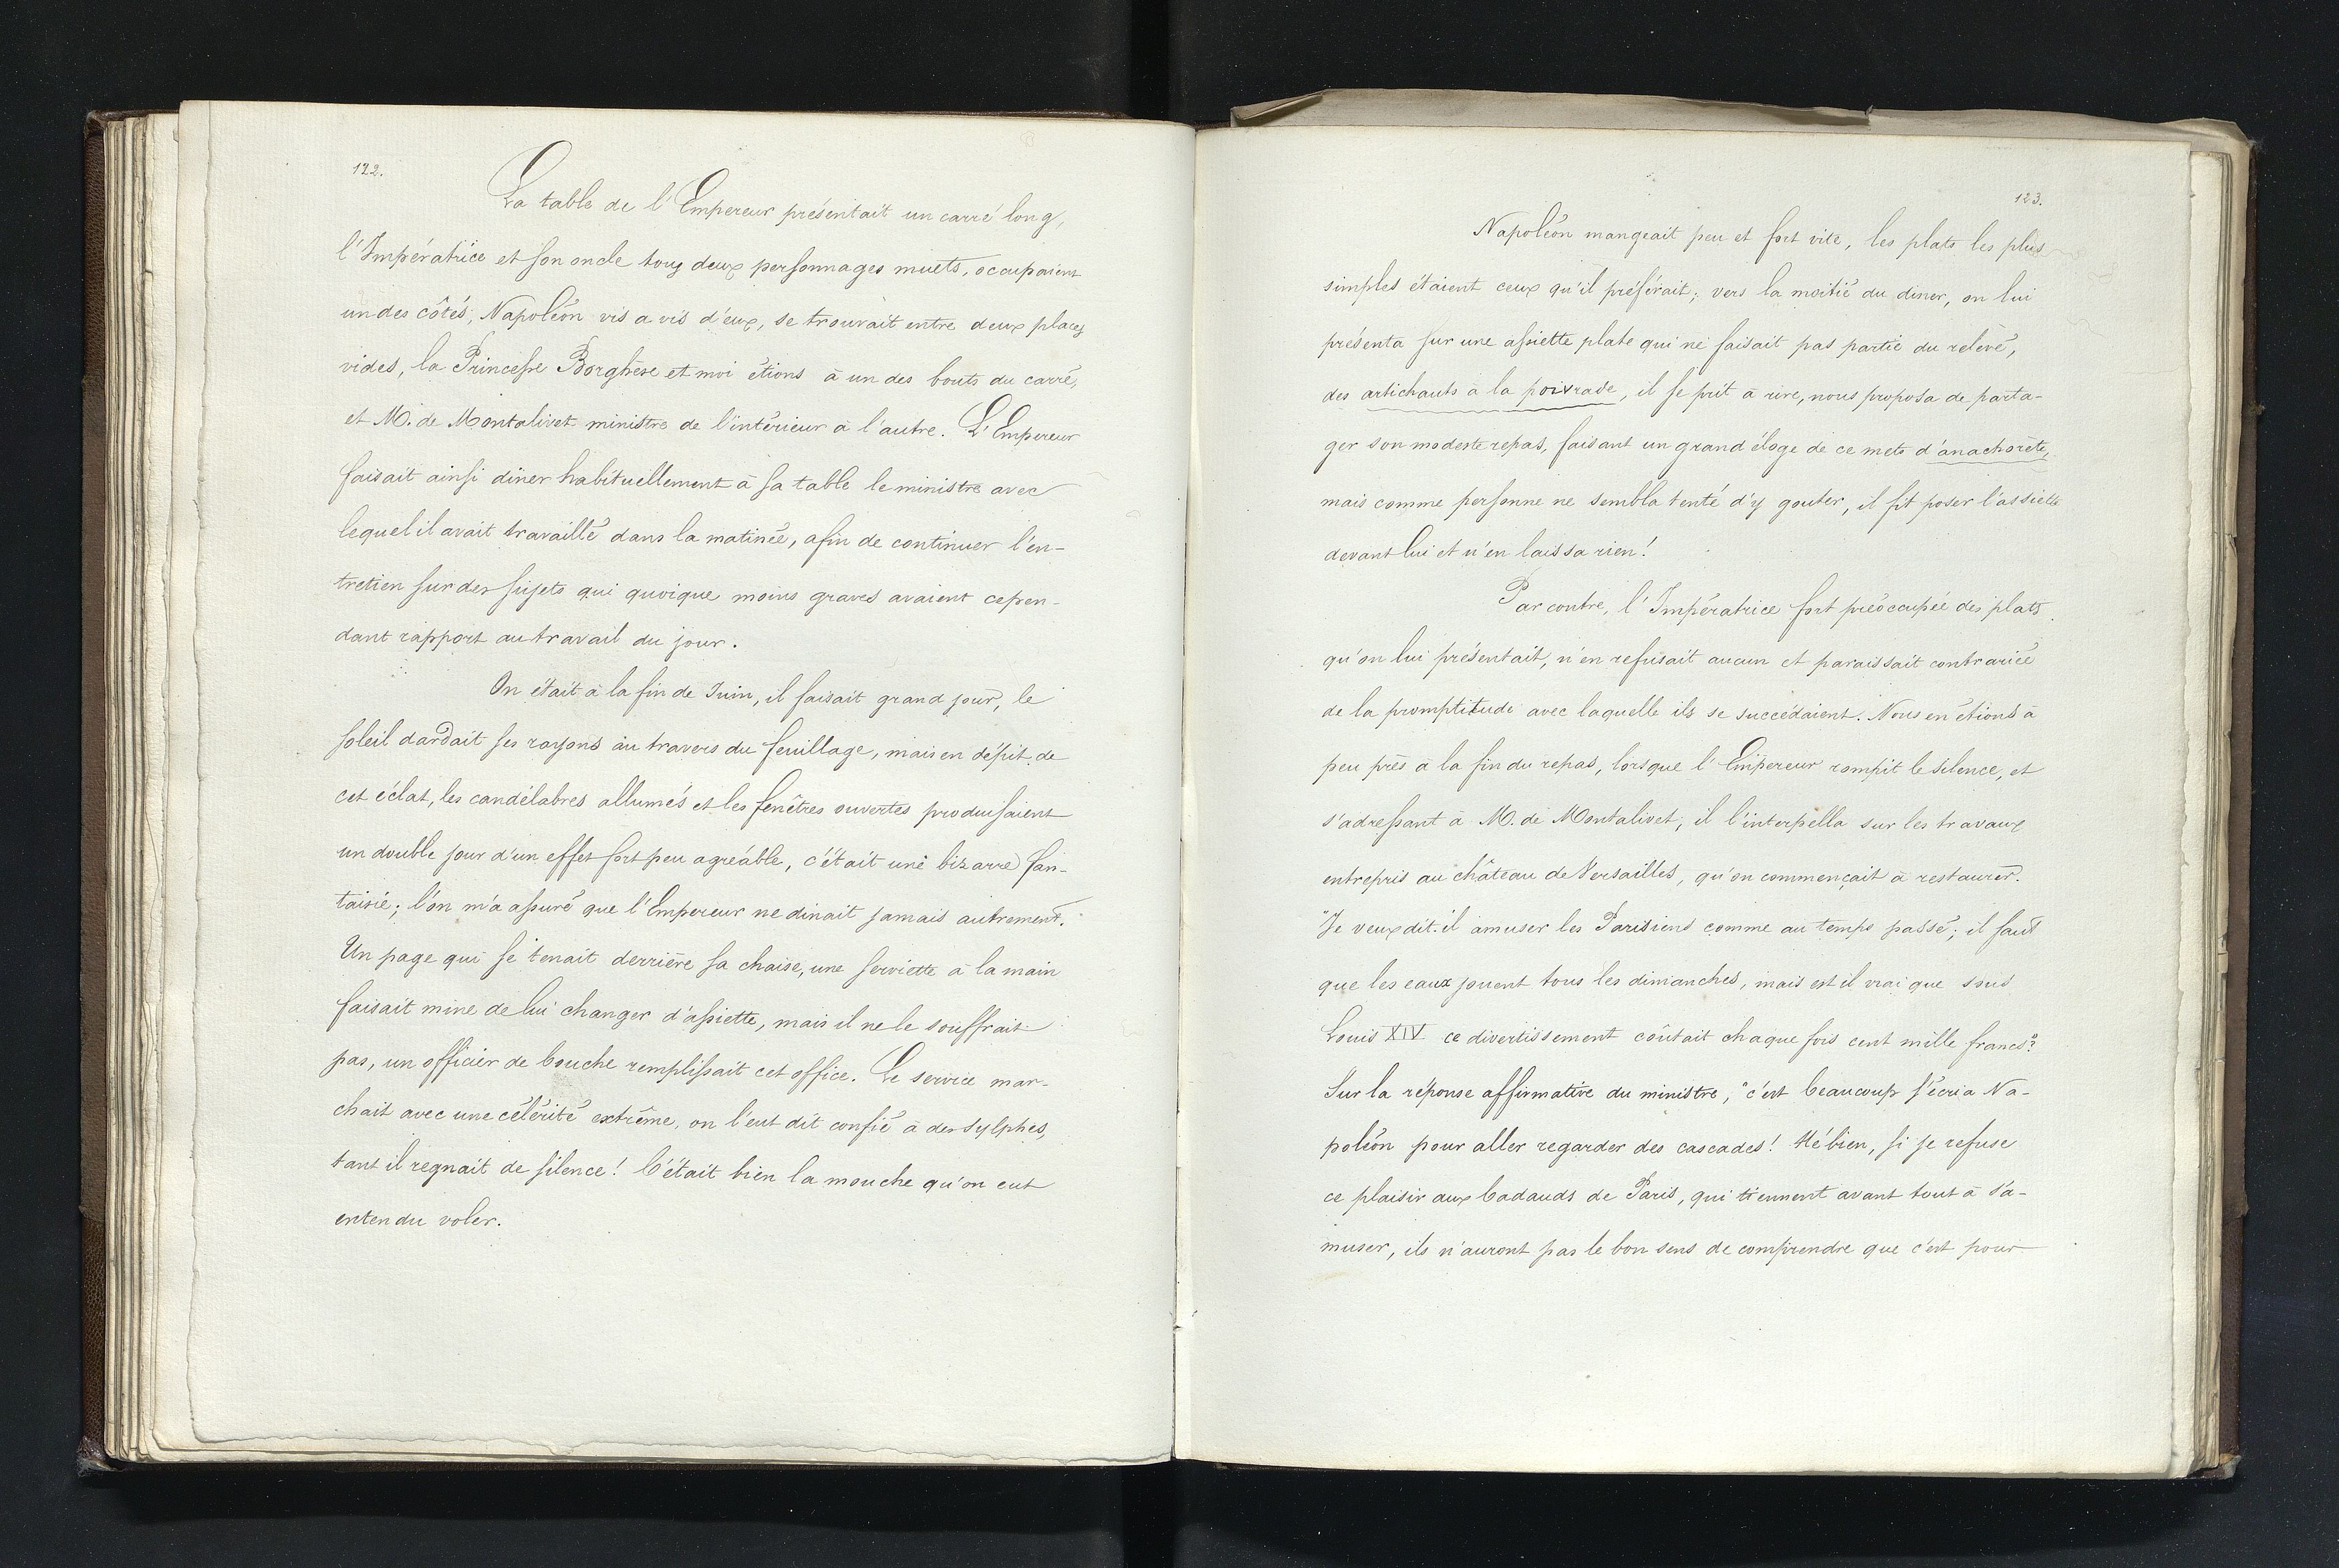 122.
La table de l'Empereur présentait un carré long,
l'Impératrice et son oncle tous deux personnages muets, occupaient
un des côtés, Napoléon vis a vis d'eux, se trouvait entre deux places
vides, la Princesse Borghèse et moi étions à un des bouts du carré,
et M. de Montalivet ministre de l'intérieur à l'autre. L'Empereur
faisait ainsi diner habituellement à sa table le ministre avec
lequel il avait travaillé dans la matinée, afin de continuer l'en-
tretien sur des sujets qui quoique moins graves avaient cepen-
dant rapport au travail du jour.
On était à la fin de Juin, il faisait grand jour, le
soleil dardait ses rayons au travers du feuillage, mais en dépit de
cet éclat, les candélabres allumés et les fenêtres ouvertes produisaient
un double jour d'un effet fort peu agréable, c'était une bizarre fan-
taisie; l'on m'a assuré que l'Empereur ne dinait jamais autrement.
Un page qui se tenait derrière sa chaise, une serviette à la main
faisait mine de lui changer d'assiette, mais il ne le souffrait
pas, un officier de bouche remplissait cet office. Le service mar-
chait avec une célérité extrême, on l'eut dit confié à des sylphes,
tant il regnait de silence! C'était bien la mouche qu'on eut
entendu voler.
123.
Napoléon mangeait peu et fort vite, les plats les plus
simples étaient ceux qu'il préférait; vers la moitié du diner, on lui
présenta sur une assiette plate qui ne faisait pas partie du relevé,
des artichauts à la poivrade, il se prit à rire, nous proposa de parta-
ger son modeste repas, faisant un grand éloge de ce mets d'anachorète,
mais comme personne ne sembla tenté d'y gouter, il fit poser l'assiette
devant lui et n'en laissa rien!
Par contre, l'Impératrice fort préoccupée des plats
qu'on lui présentait, n'en refusait aucun et paraissait contrariée
de la promptitude avec laquelle ils se succédaient. Nous en étions à
peu près à la fin du repas, lorsque l'Empereur rompit le silence, et
s'adressant à M. de Montalivet, il l'interpella sur les travaux
entrepris au château de Versailles, qu'on commençait à restaurer.
"Je veux dit-il amuser les Parisiens comme au temps passé; il faut
que les eaux jouent tous les dimanches, mais est il vrai que sous
Louis XIV ce divertissement coûtait chaque fois cent mille francs"?
Sur la réponse affirmative du ministre, "c'est beaucoup s'écria Na-
poléon pour aller regarder des cascades! Hé bien, si je refuse
ce plaisir aux badauds de Paris, qui tiennent avant tout à s'a-
muser, ils n'auront pas le bon sens de comprendre que c'est pour